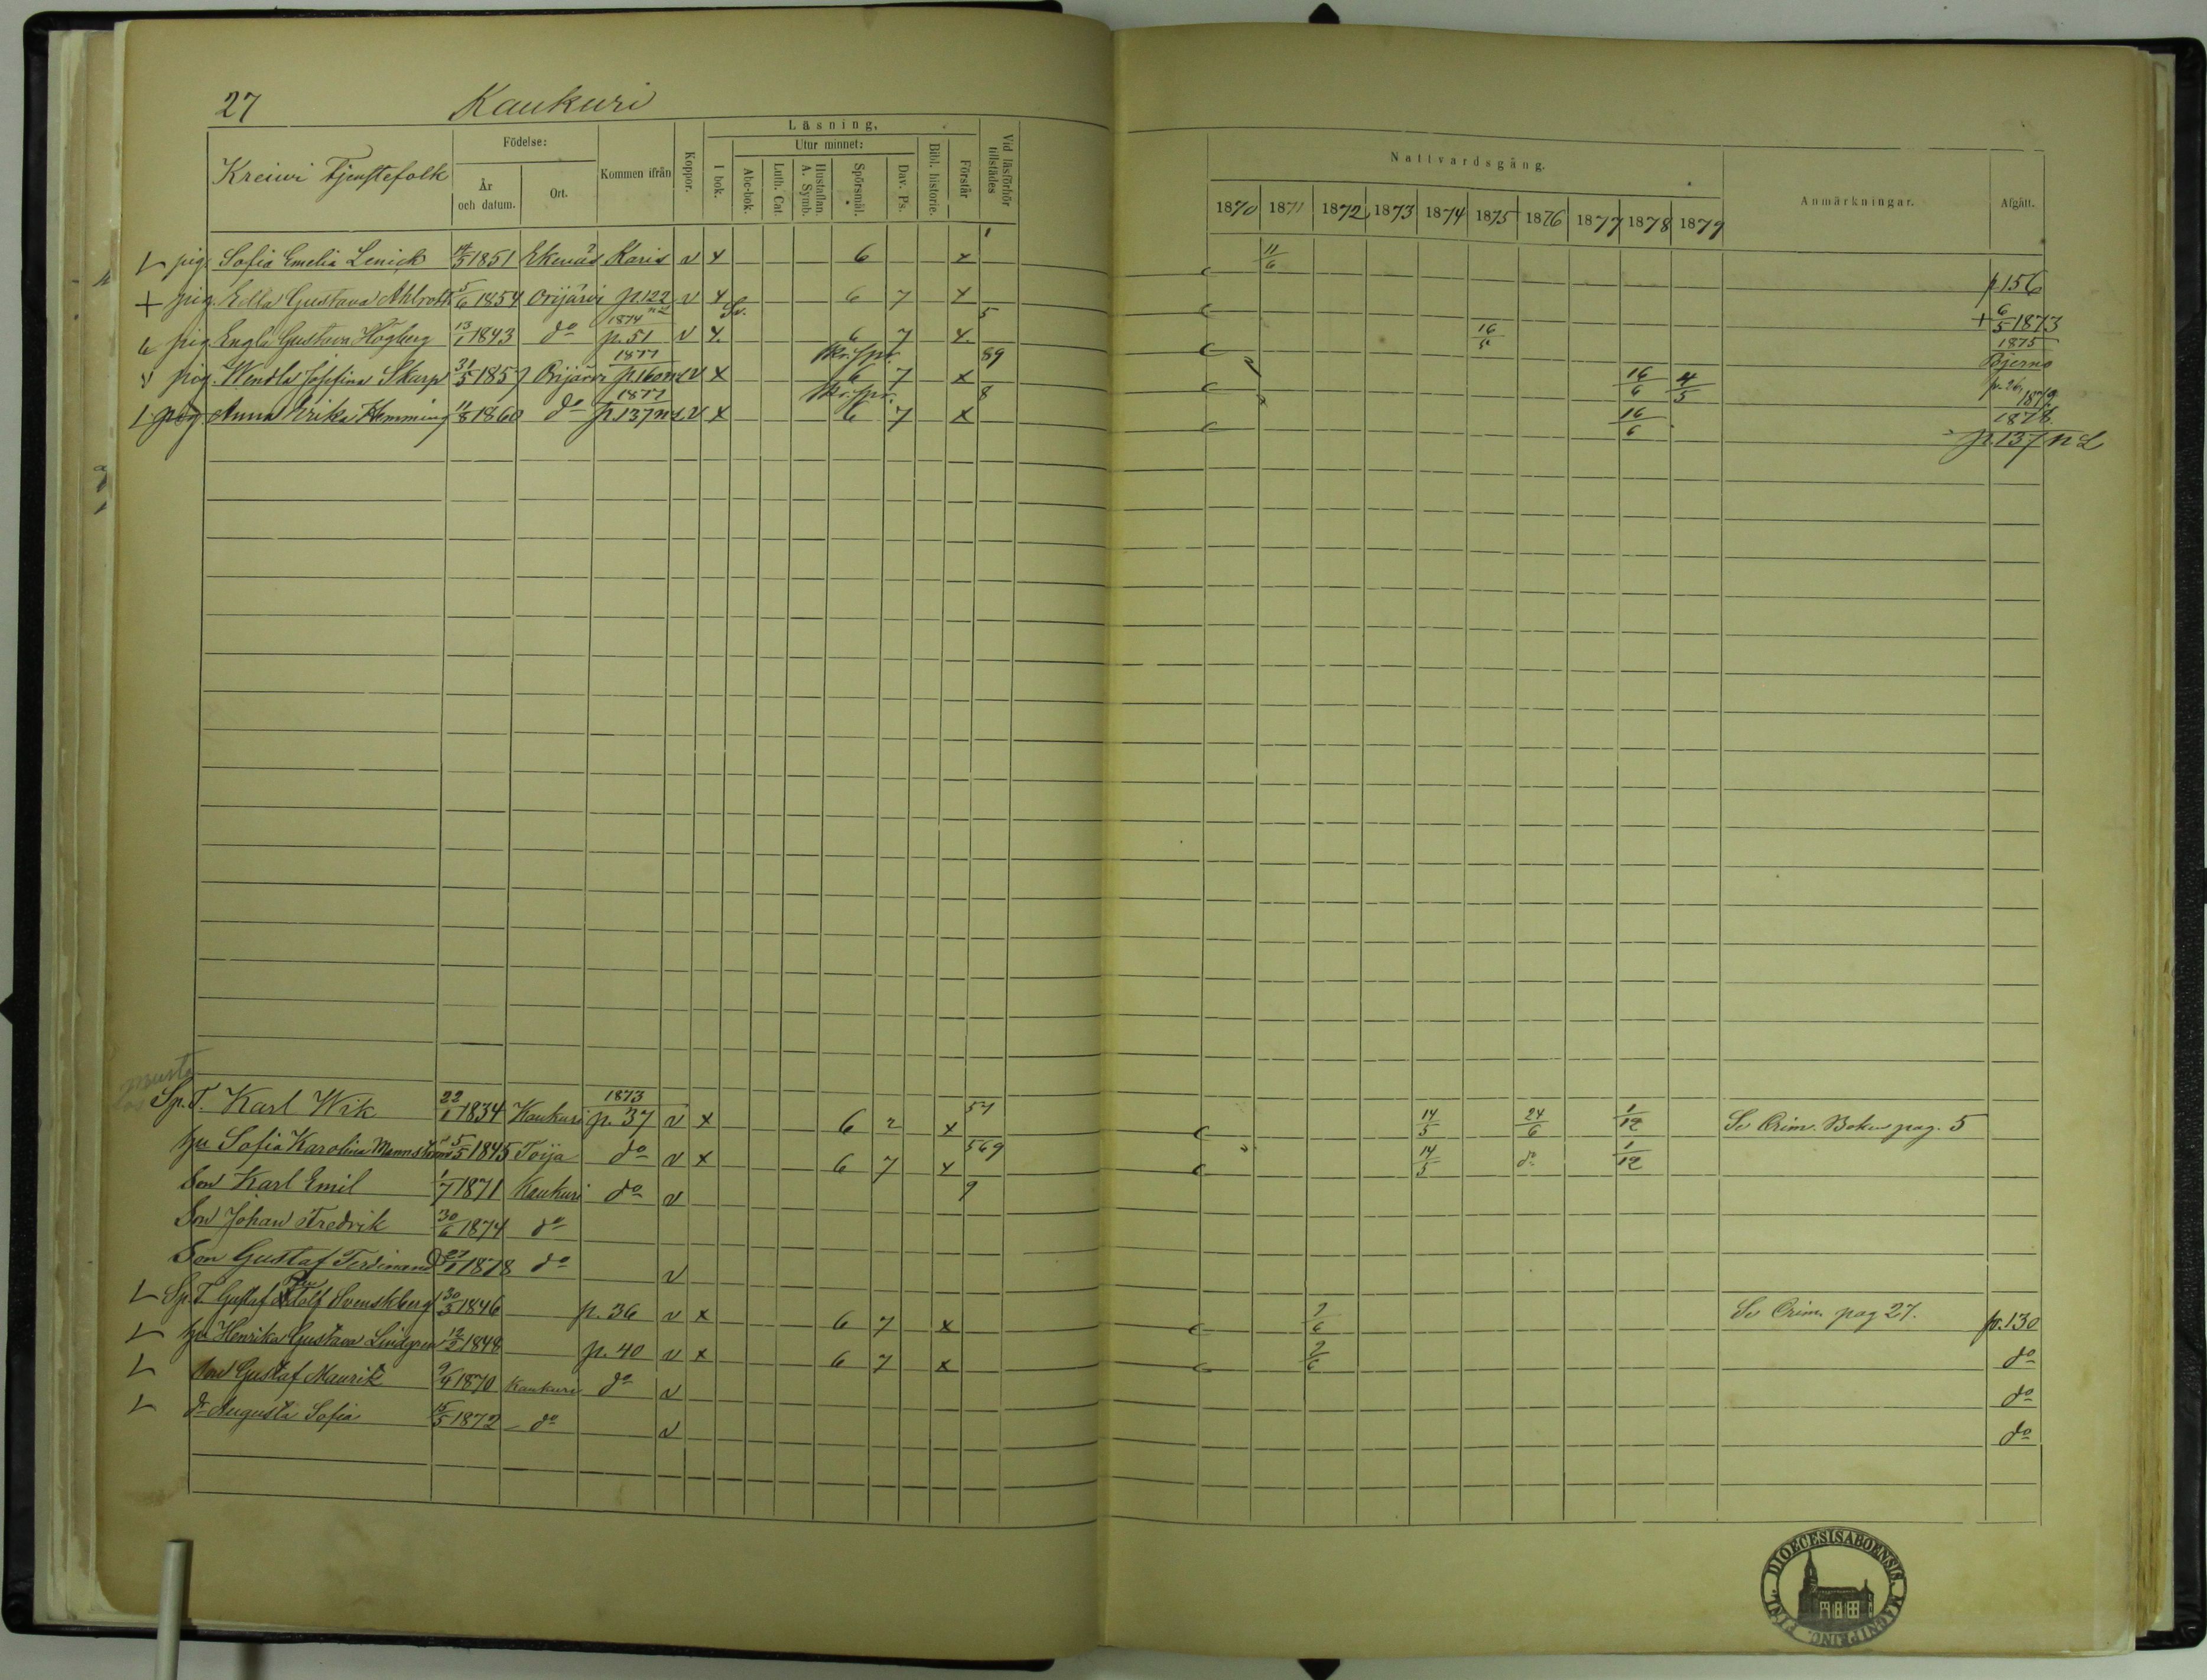 27 Kaukuri
Kreiwi Tjenstefolk
Födelse:
År och datum.
Ort.
Kommen ifrån
Koppor.
Läsning,
I bok.
Utur minnet:
Abc-bok.
Luth. Cat.
Hustaflan. A. Symb.
Spörsmål.
Dav. Ps.
Bibl. historie.
Förstår
Vid läsförhör tillstädes
Nattvardsgång.
1870 1871 1872 1873 1874 1875 1876 1877 1878 1879
Anmärkningar.
Afgått.
pig. Sofia Emelia Lenick 14/5 1851 Ekenäs Karis v x 6 x 1 11/6 p. 156
+ pig. Edla Gustava Ahlroth 5/6 1854 Orijärvi p. 122 v x 6 7 x + 6/5 1873
pig. Engla Gustava Högberg 13/1 1843 do 1874 p. 51 v x Sv. 6 7 x 5 16/5 1875 Bjerno
v pig. Wendla Josefina Skarp 31/5 1857 Orijärvi 1877 p. 160 v x Skr. spr. 6 7 x 89 16/6 4/5 p. 26 1879
pig. Anna Erika Hemming 11/8 1860 do 1877 p. 137 n L v x Skr. spr. 6 7 x 8 16/6 1878. p. 137 n L
Sp. T. Karl Wik 22/1 1834 Kaukuri 1873 p. 37 v x 6 2 x 57 14/5 24/6 1/12 Se Crim. Boken pag. 5
hu Sofia Karolina Mannström 5/5 1845 Toija do v x 6 7 x 569 14/5 do 1/12
Son Karl Emil 1/7 1871 Kaukuri do v 9
Son Johan Fredrik 30/6 1874 do
Son Gustaf Ferdinand 27/1 1878 do v
Sp. T. Gustaf Svenskberg 30/3 1846 p. 36 v x 6 7 x 2/6 Se Crim. pag 27. p. 130
hu Henrika Gustava Lindgren 12/2 1848 p. 40 v x 6 7 x 2/6 do
Son Gustaf Maurik 9/4 1870 Kaukuri do v do
dr Augusta Sofia 15/5 1872 do v do
DIOECESIS ABOENSIS. MAGNI PRINC. FINL.